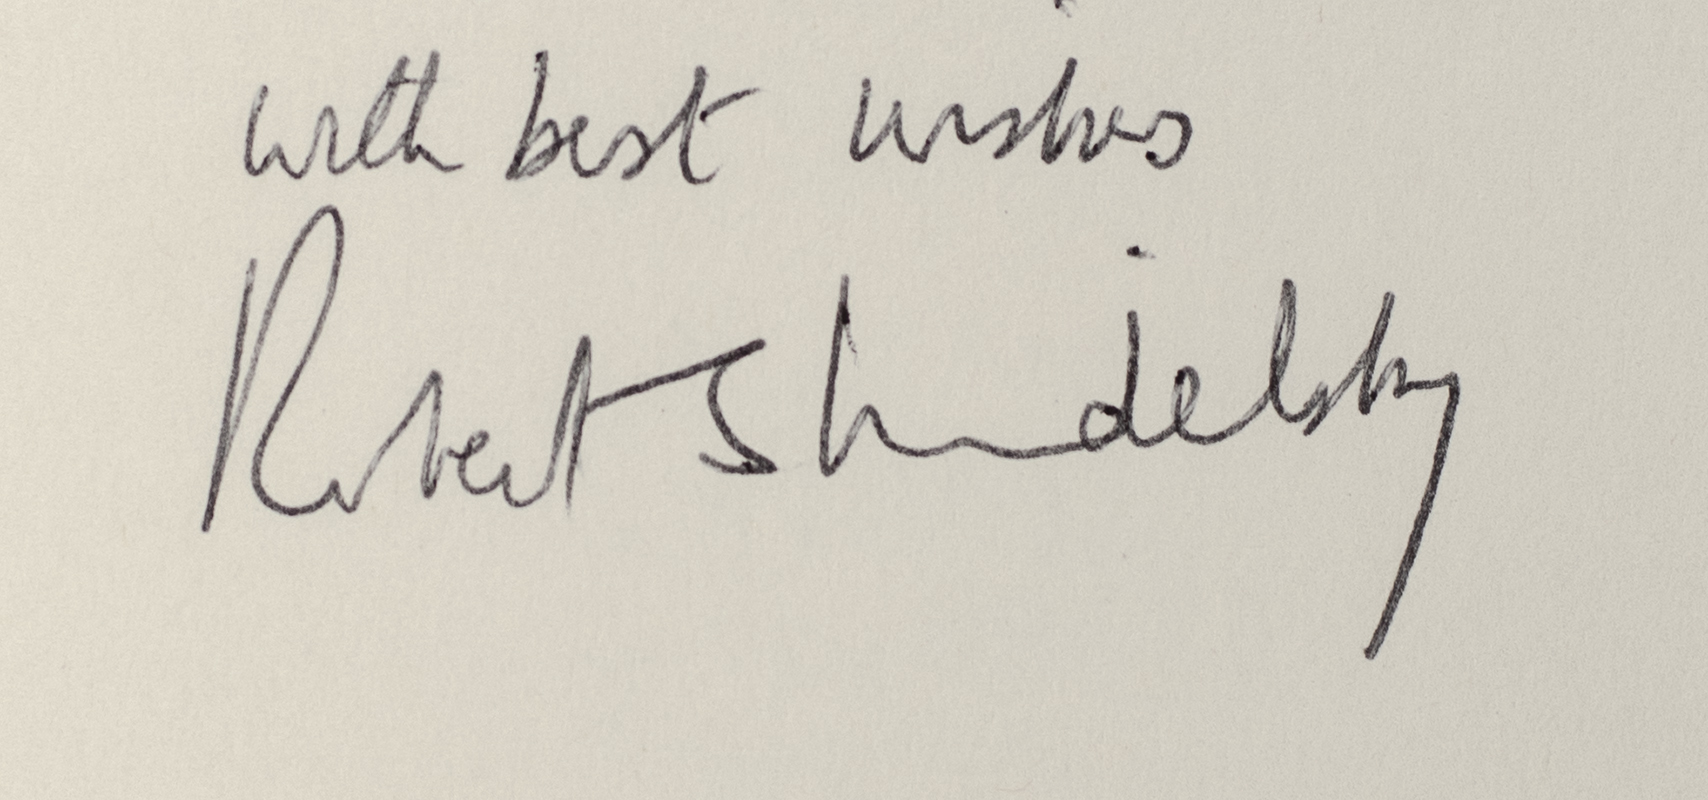 with best wishes
Robert Skidelsky